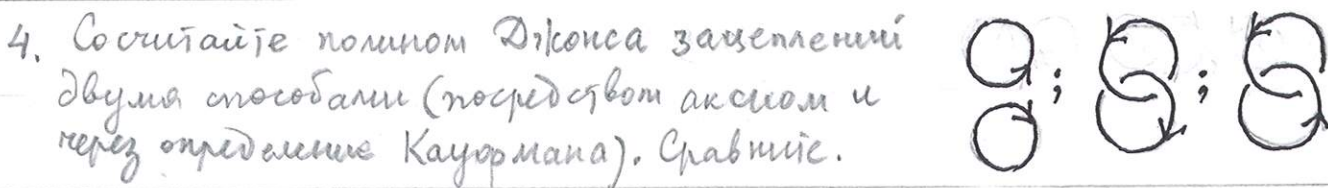 4. Сосчитайте полином Джонса зацеплений
двумя способами (посредством аксиом и
через определение Кауфмана). Сравните.